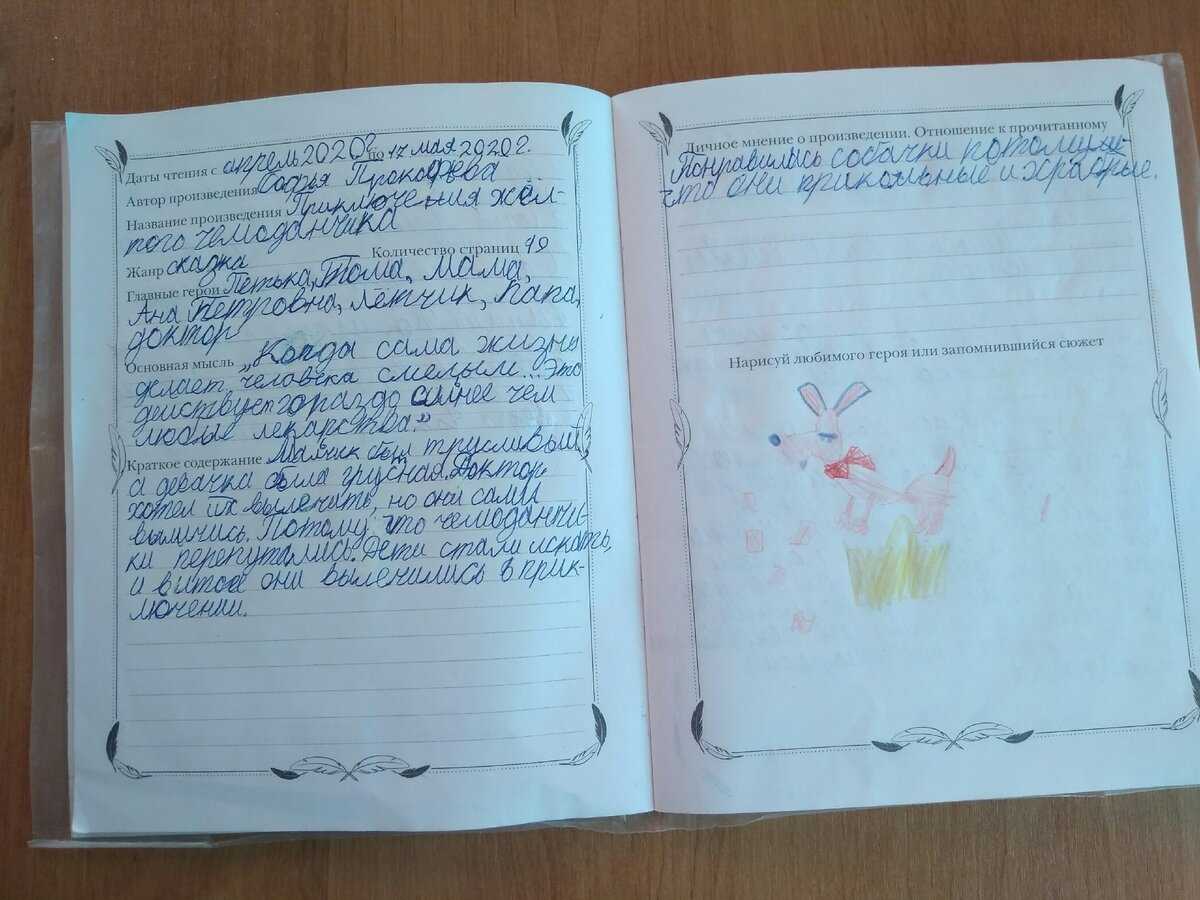 Даты чтения с апрель 2020г. по 17 мая 2020г.
Автор произведения Софья Прокофьева
Название произведения Приключения жёл-
того чемоданчика
Жанр сказка Количество страниц 79
Главные герои Петька, Тома, Мама,
Ана Петровна, лётчик, Папа,
доктор
Основная мысль „Когда сама жизнь
делает человека смелым... Это
действует гораздо сильнее чем
любые лекарства."
Краткое содержание Малчик был трусливый,
а девачка была грусная. Доктор
хотел их вылечить, но они сами
выличись. Потому что чемоданчи-
ки перепутались. Дети стали искать,
и в итоге они вылечились в прик-
лючении.
Личное мнение о произведении. Отношение к прочитанному
Понравились собачки потому
что они прикольные и храбрые.
Нарисуй любимого героя или запомнившийся сюжет